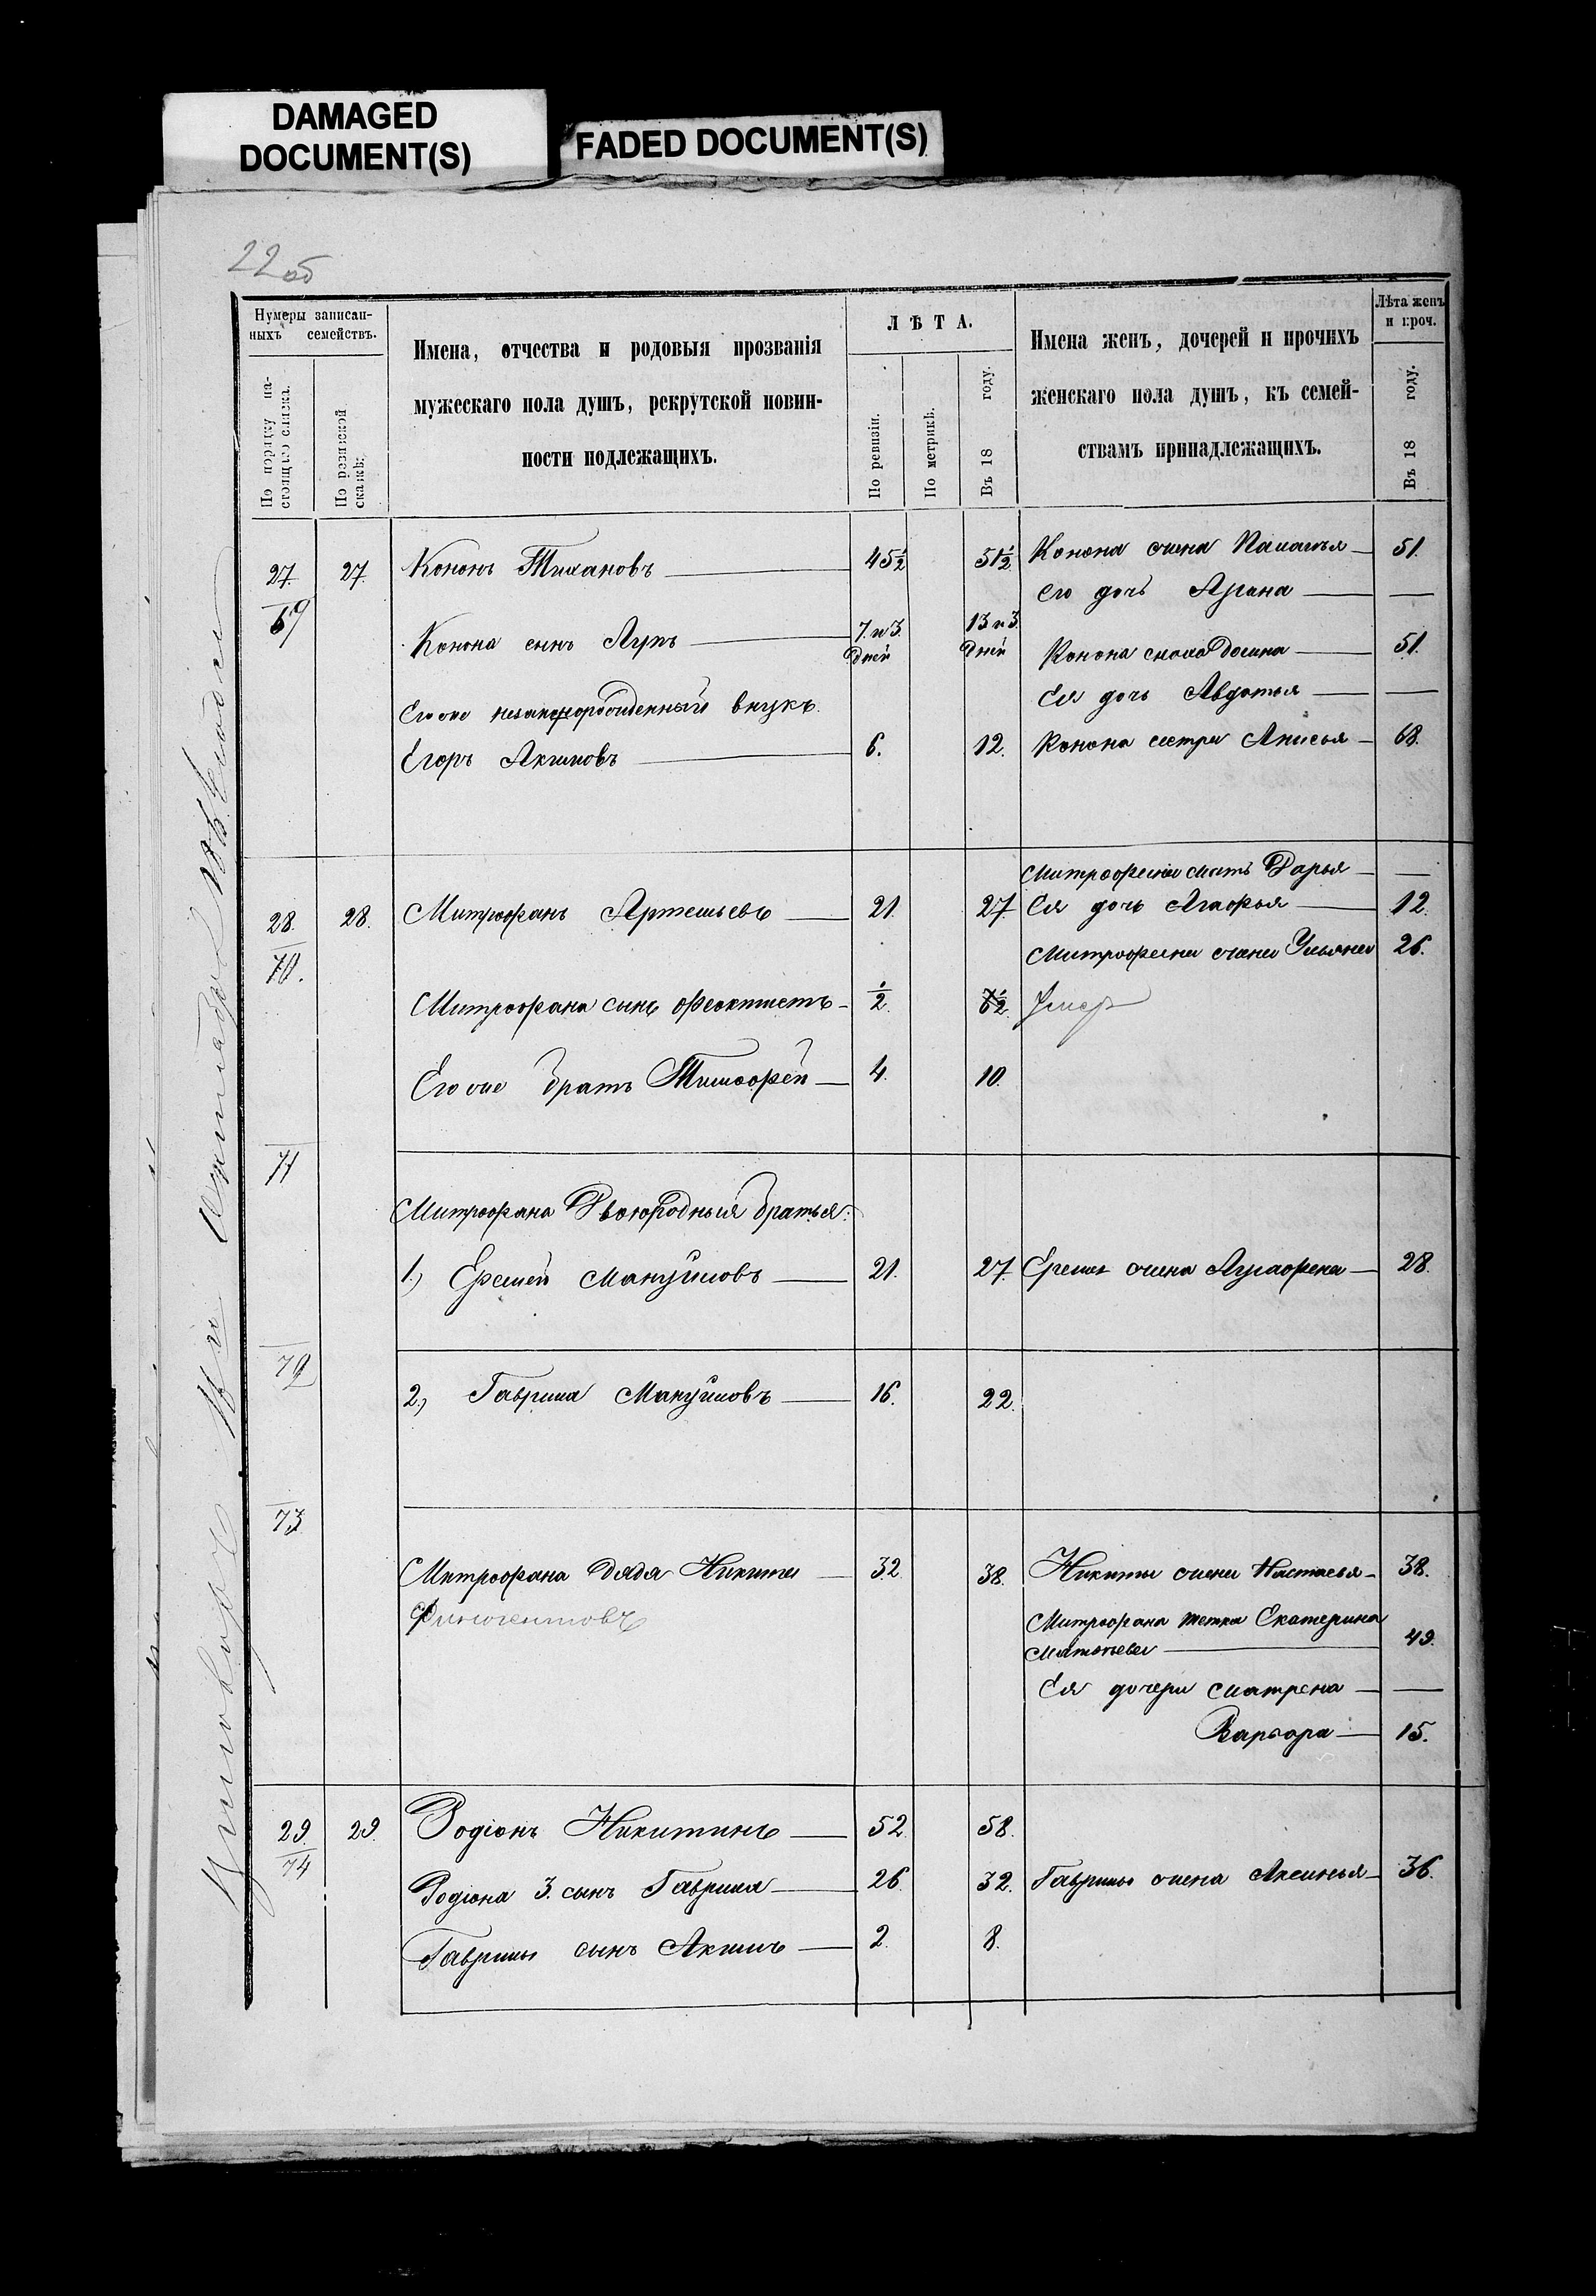 DAMAGED
DOCUMENT(S)
FADED DOCUMENT(S)
22 об
Нумеры записан-
ныхъ семействъ.
По порядку на-
стоящаго списка.
По ревизской
сказкѣ.
Имена, отчества и родовыя прозванія
мужескаго пола душъ, рекрутской повин-
ности подлежащихъ.
ЛѢТА.
По ревизіи.
По метрикѣ.
Въ 18 году.
Имена женъ, дочерей и прочихъ
женскаго пола душъ, къ семей-
ствамъ принадлежащихъ.
Лѣта женъ
и проч.
Въ 18 году.
27 27. Кононъ Тихановъ 45½ 51½ Конона жена Палагья 51.
69 Его дочь Арина —
Конона сынъ Лупъ 7. и 3. дней 13 и 3. дней
Конона сноха Домна 51.
Ея дочь Авдотья —
Его же незаконнорожденный внукъ
Егоръ Акимовъ 6. 12. Конона сестра Анисья 68.
Митрофана мать Дарья —
28. 28. Митрофанъ Артемьевъ 21. 27 Ея дочь Агафья 12.
70. Митрофана жена Ульяна 26.
Митрофана сынъ Феоктистъ ½ 6½ Умер
Его же братъ Тимофей 4. 10.
71
Митрофана Двоюродныя братья:
1.) Еремей Мануйловъ 21. 27. Еремея жена Аграфена 28.
72
2.) Гаврила Мануйловъ 16. 22.
73
Митрофана дядя Никита 32 38. Никиты жена Настасья 38.
Финогентовъ
Митрофана тетка Екатерина
Матвѣева 49.
Ея дочери Матрена —
Варвара 15.
29. 29. Родіонъ Никитинъ 52 58.
74
Родіона 3. сынъ Гаврила 26 32. Гаврилы жена Аксинья 36.
Гаврилы сынъ Акимъ 2. 8.